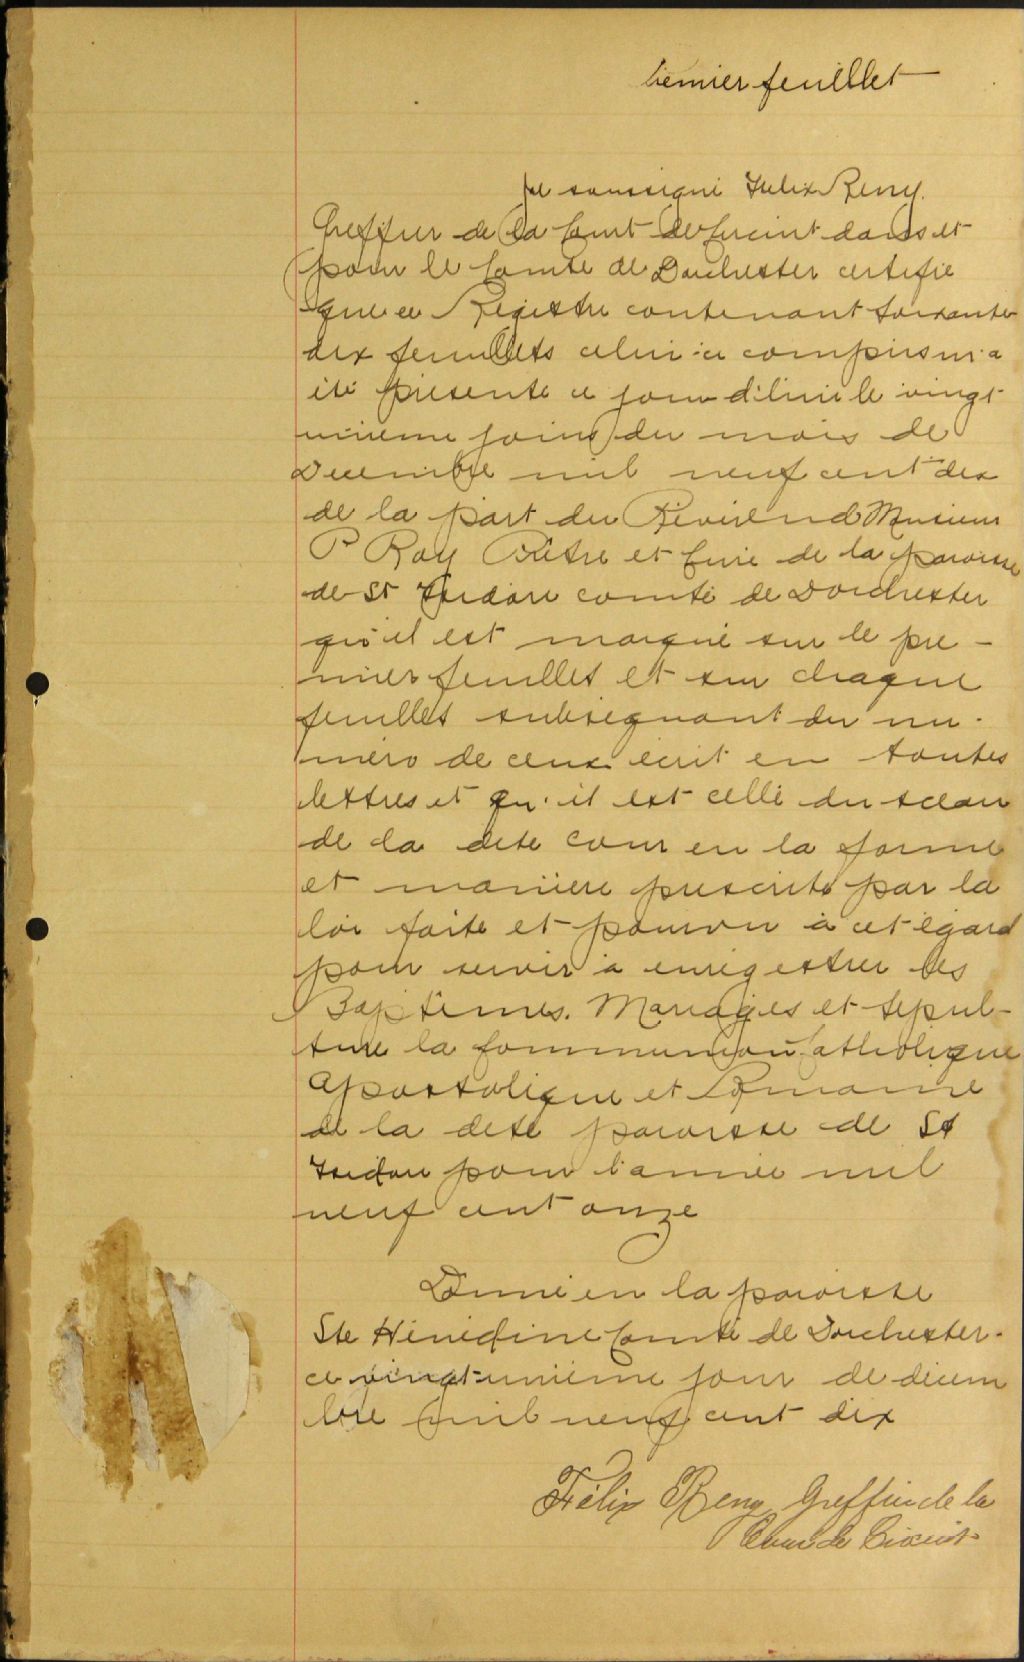 premier feuillet
Je soussigné Felix Remy
Greffier de la Court de Circuit dans et
pour le Comté de Dorchester certifie
que ce Registre contenant soixante
dix feuillets celui-ci compris m'a
été présenté ce jour d'hui le vingt
unieme jour du mois de
Decembre mil neuf cent dix
de la part du Révérend Monsieur
P Roy Prêtre et Curé de la paroisse
de St Isidore comté de Dorchester
qu'il est marqué sur le pre-
mier feuillet et sur chaque
feuillet subséquant du nu-
méro de ceux écrit en toutes
lettres et qu'il est cellé du sceau
de la dite cour en la forme
et manière prescrite par la
loi faite et pourvu à cet égard
pour servir à enrégestrer les
Baptêmes. Mariages et sepul-
ture la Communion Catholique
Apostolique et Romaine
de la dite paroisse de St
Isidore pour l'année mil
neuf cent onze
Donné en la paroisse
Ste Hénédine Comté de Dorchester
ce vingt-unième jour de décem
bre mil neuf cent dix
Félix Remy Greffier de la
Cour de Circuit